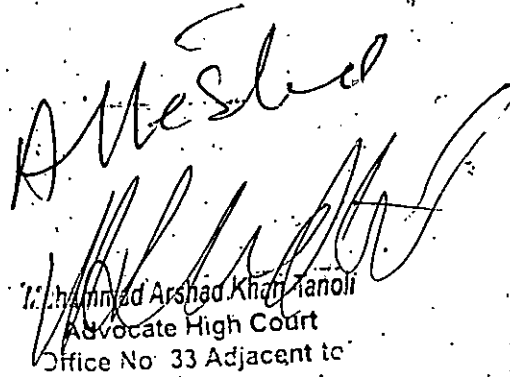 Attested
Muhammad Arshad Khan Tanoli
Advocate High Court
Office No 33 Adjacent to